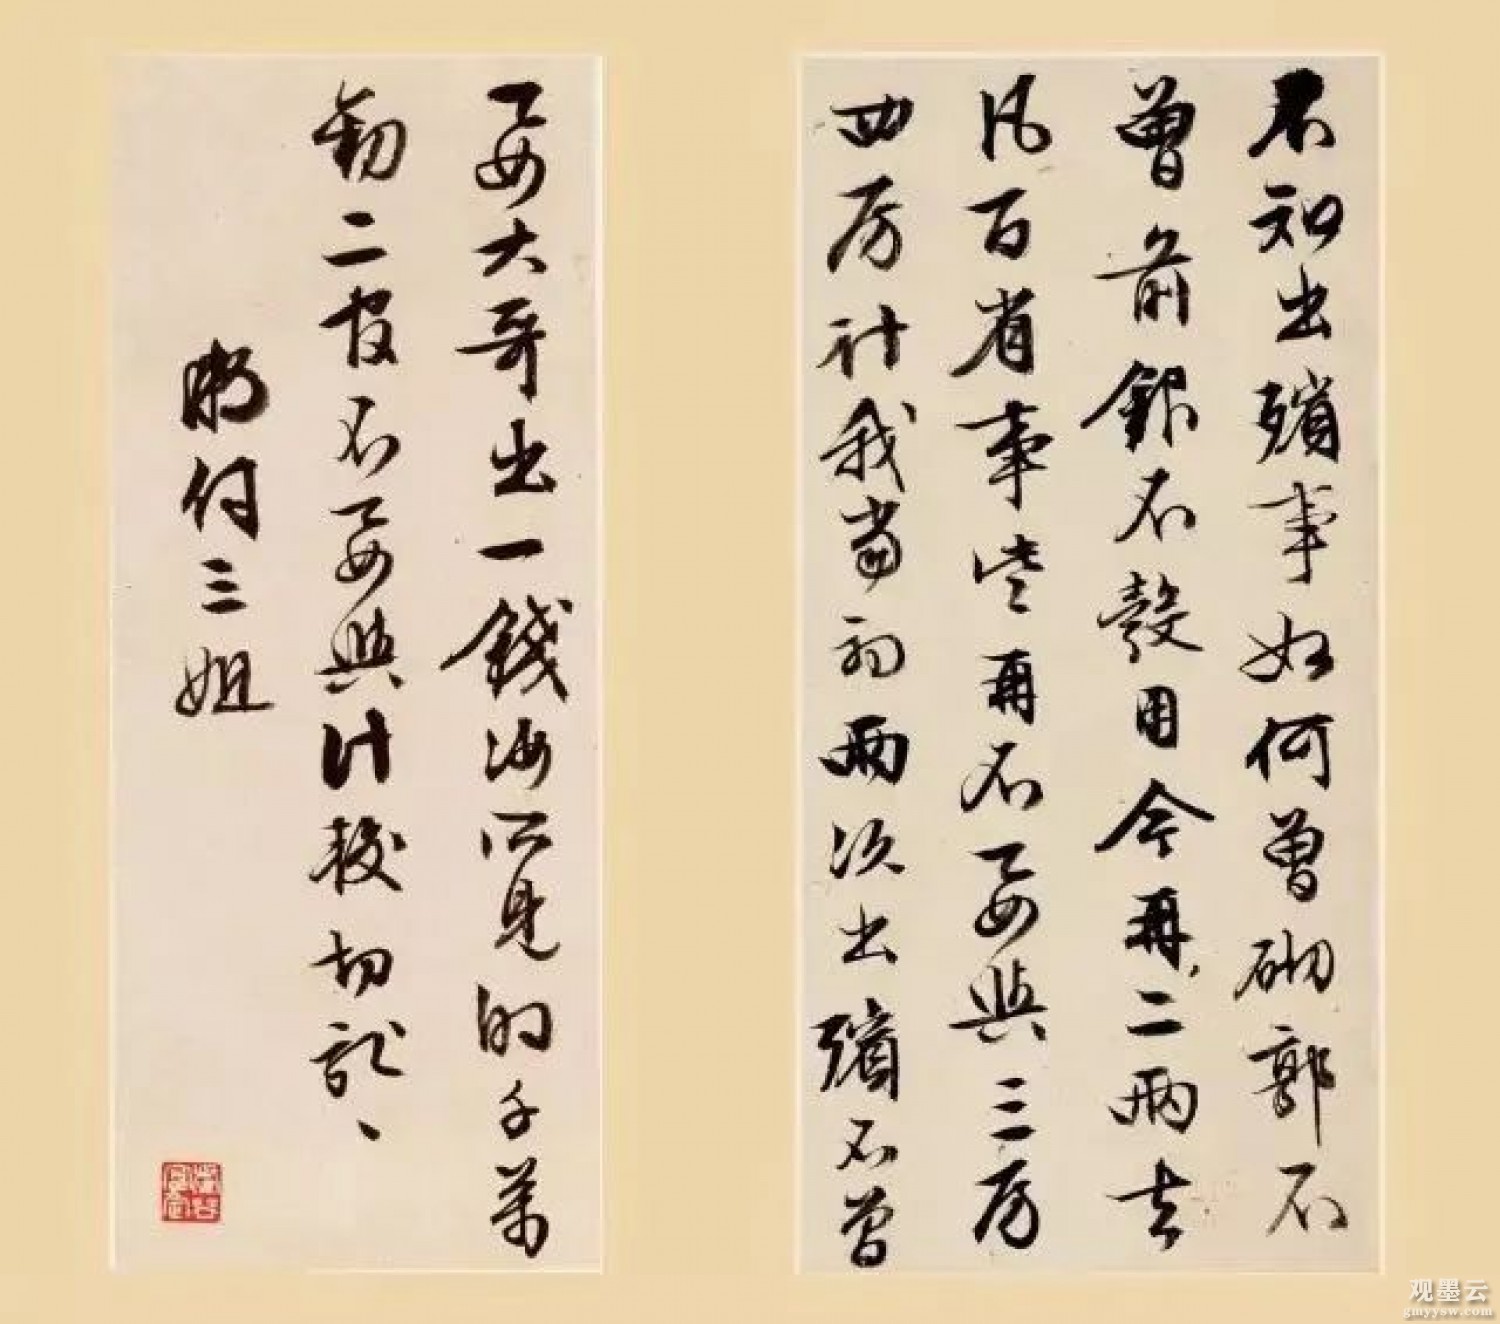 不知出殯事如何曾砌郭不
曾前銀不彀用今再二兩去
凡百省事些再不要與三房
四房計我當初兩次出殯不曾
要大哥出一錢汝所見的千萬
勸二官不要與計較切記、
附付三姐
观墨云
gmyysw.com